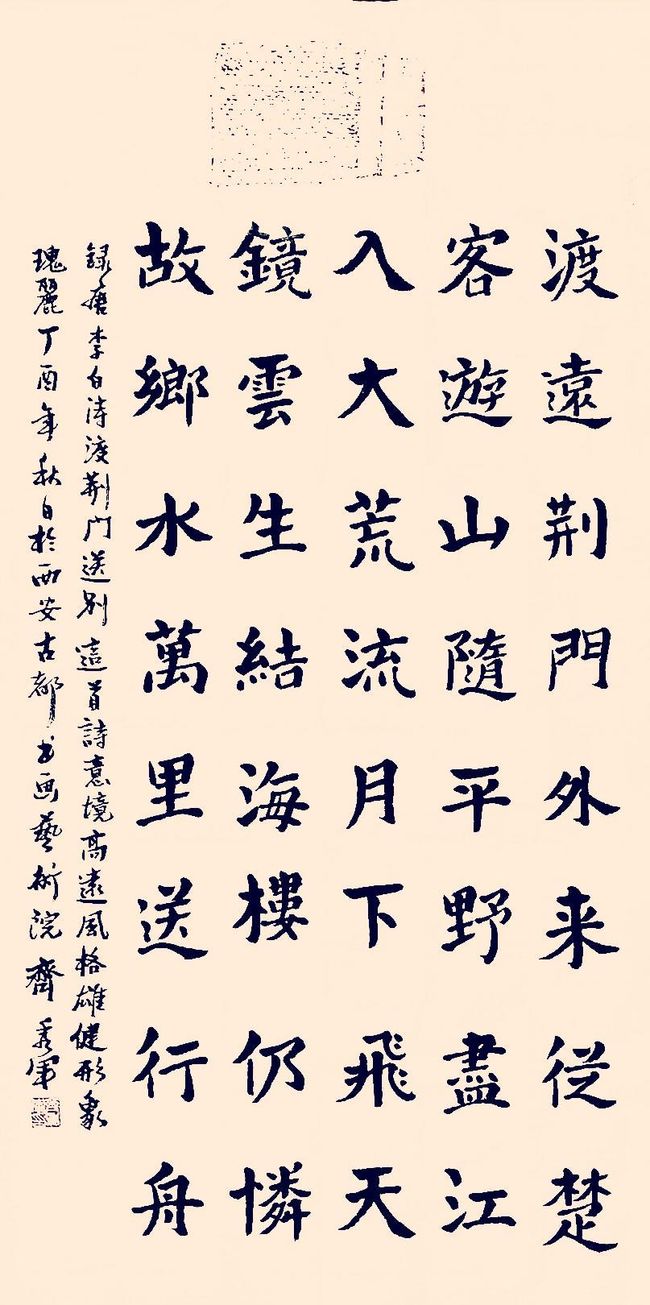 渡遠荆門外来從楚
客遊山隨平野盡江
入大荒流月下飛天
鏡雲生結海樓仍憐
故鄉水萬里送行舟
録唐李白诗渡荆门送别這首詩意境高遠風格雄健形象
瑰麗丁酉年秋日於西安古都书画藝術院齊秀军